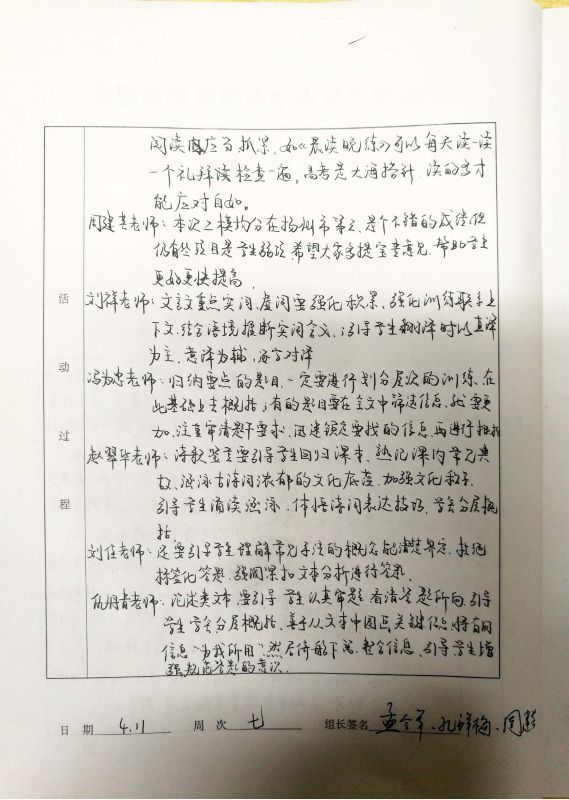 阅读应当抓紧、如《晨读晚练》可以每天读一读
一个礼拜读检查一遍，高考是大海捞针，读的多才
能应对自如。
周建其老师：本次二模均分在扬州市第三，是个不错的成绩，但
仍有些题目是学生弱项，希望大家多提宝贵意见，帮助学生
更好更快提高。
活
刘祥老师：文言文重点实词、虚词要强化积累，强化训练联系上
下文，结合语境推断实词含义，引导学生翻译时以直译
为主，意译为辅，逐字对译
动
冯为忠老师：归纳要点的题目，一定要进行划分层次的训练，在
此基础上去概括，有的题目要在全文中筛选信息，就要更
加注重审清题干要求，迅速锁定要找的信息，再进行概括
过
赵翠华老师：诗歌鉴赏要引导学生回归课本，熟记课内常见典
故，涵泳古诗词浓郁的文化底蕴，加强文化积淀
程
引导学生诵读涵泳，体悟诗词表达技巧，学会分层概
括
刘佳老师：还要引导学生理解常见手法的概念，能清楚界定，杜绝
标签化答题，强调紧扣文本分析进行答题。
老师：论述类文本，要引导学生认真审题，看清答题所向，引导
学生学会分层概括，善于从文本中圈画关键信息，将有关
信息“为我所用”，然后
整合信息，引导学生增
强规范答题的意识。
日 期 4.11 周 次 七 组长签名 孟令军、孔祥梅、周